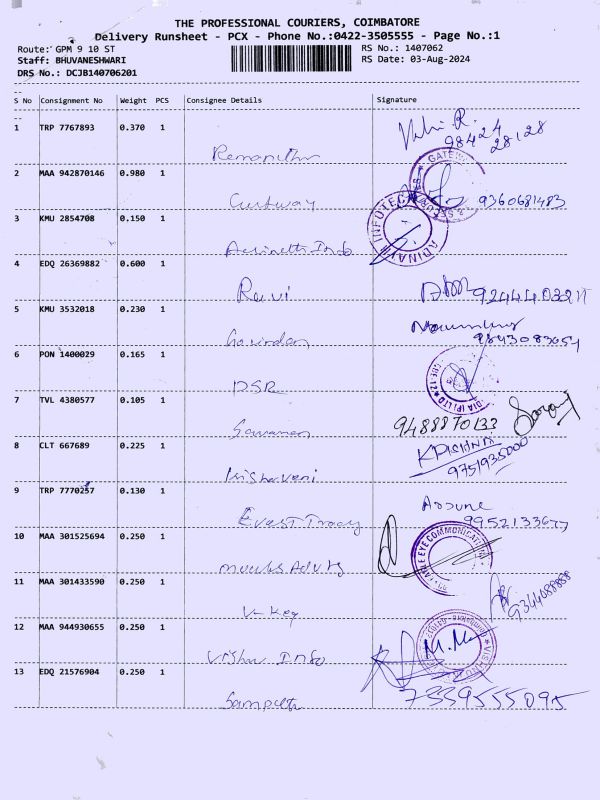 THE PROFESSIONAL COURIERS, COIMBATORE
Delivery Runsheet - PCX - Phone No.:0422-3505555 - Page No.:1
Route: GPM 9 10 ST RS No.: 1407062
Staff: BHUVANESHWARI RS Date: 03-Aug-2024
DRS No.: DCJB140706201
S No Consignment No Weight PCS Consignee Details Signature
1 TRP 7767893 0.370 1
98424 28128
2 MAA 942870146 0.980 1
9360681483
3 KMU 2854708 0.150 1
INFOTECH
4 EDQ 26369882 0.600 1
Ravi
5 KMU 3532018 0.230 1
Govindan
6 PON 1400029 0.165 1
DSR
7 TVL 4380577 0.105 1
9488870133
8 CLT 667689 0.225 1
KRISHNA
9751935000
9 TRP 7770257 0.130 1
9952133677
10 MAA 301525694 0.250 1
EYE COMMUNICATION
11 MAA 301433590 0.250 1
V-Key
9344088888
12 MAA 944930655 0.250 1
Vishu Info
13 EDQ 21576904 0.250 1
Sampath 7339555095